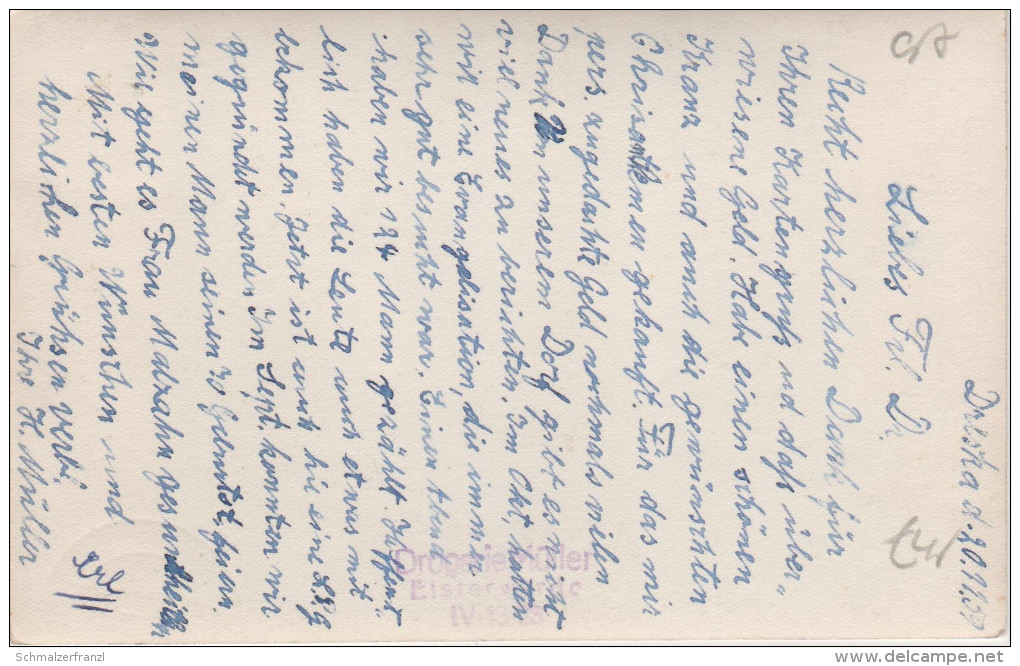 Dreska d. 20.11.59
Liebes Frl. D.
Recht herzlichen Dank für
Ihren Kartengruß und daß über-
wiesene Geld. Habe einen schönen
Kranz und auch die gewünschten
Chrisantemen gekauft. Für das mir
pers. zugedachte Geld nochmals vielen
Dank. Von unserem Dorf gibt es nicht
viel neues zu berichten. Im Okt. hatten
wir eine Evangelisation, die immer
sehr gut besucht war. Einen Abend
haben wir 124 Mann gezählt. Hoffent-
lich haben die Leute auch etwas mit
bekommen. Jetzt ist auch hie eine LPG
gegründet worden. Im Sept. konnten wir
meinen Mann seinen 70 Geburtst. feiern.
Wie geht es Frau Madzahn gesundheitl.
Mit besten Wünschen und
herzlichen Grühsen verbl.
Ihre H. Müller
erl.
Drogerie Müller
Elsterwerda
© Schmalzerfranzl
delcampe.net